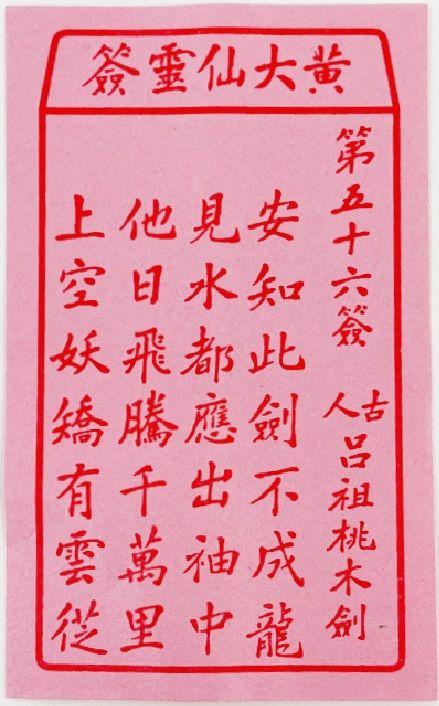 黄大仙靈簽
第五十六簽
古人
呂祖桃木劍
安知此劍不成龍
見水都應出袖中
他日飛騰千萬里
上空妖矯有雲從